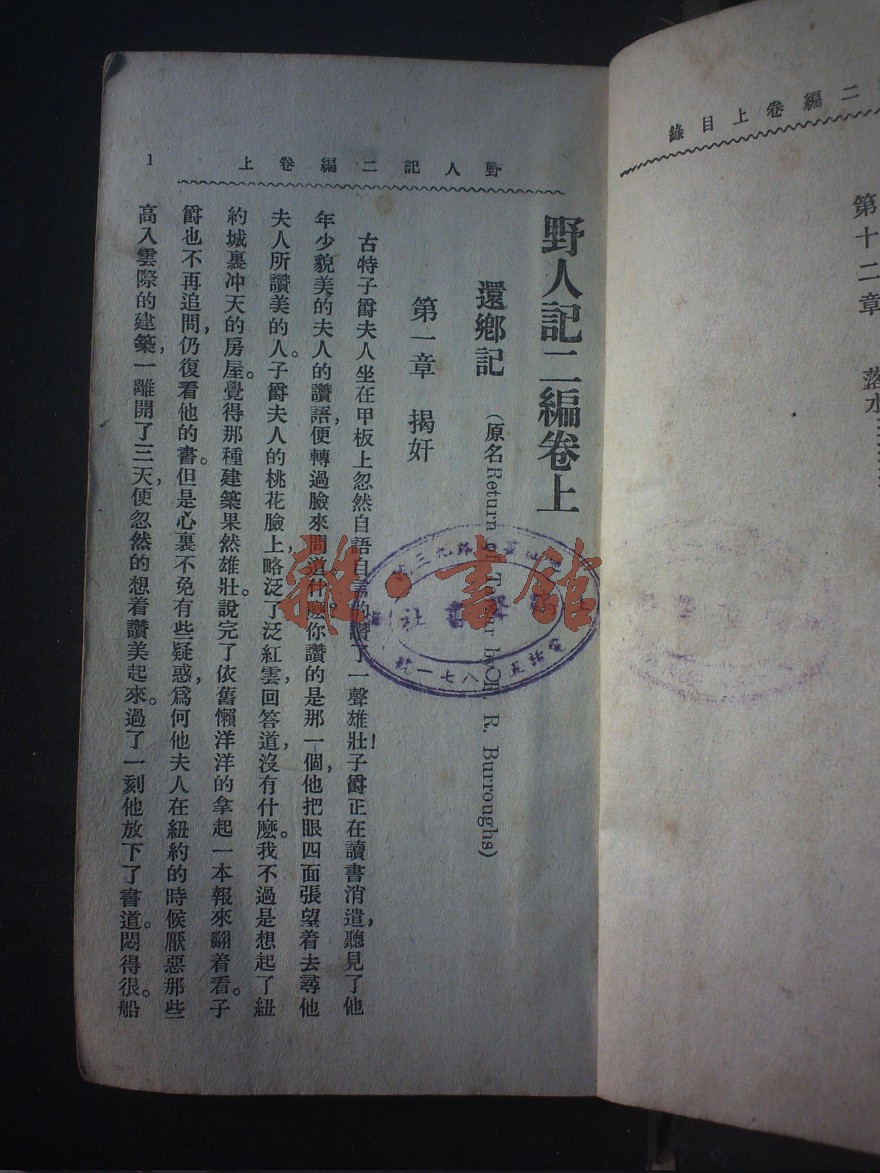 錄目上卷編二
第十二章 落水
上卷編二記人野
1
野人記二編卷上
還鄉記 (原名Return of by R. Burroughs)
第一章 揭奸
古特子爵夫人坐在甲板上忽然自語自言的讚了一聲雄壯!子爵正在讀書消遣,聽見了他
年少貌美的夫人的讚語,便轉過臉來問道,什麼?你讚的是那一個,他把眼四面張望着去尋他
夫人所讚美的人。子爵夫人的桃花臉上,略泛了泛紅雲,回答道,沒有什麼。我不過是想起了紐
約城裏冲天的房屋。覺得那種建築果然雄壯。說完了依舊懶洋洋的拿起一本報來翻着看。子
爵也不再追問,仍復看他的書。但是心裏不免有些疑惑,爲何他夫人在紐約的時候厭惡那些
高入雲際的建築,一離開了三天,便忽然的想着讚美起來。過了一刻他放下了書道。悶得很。船
雜·書館
社